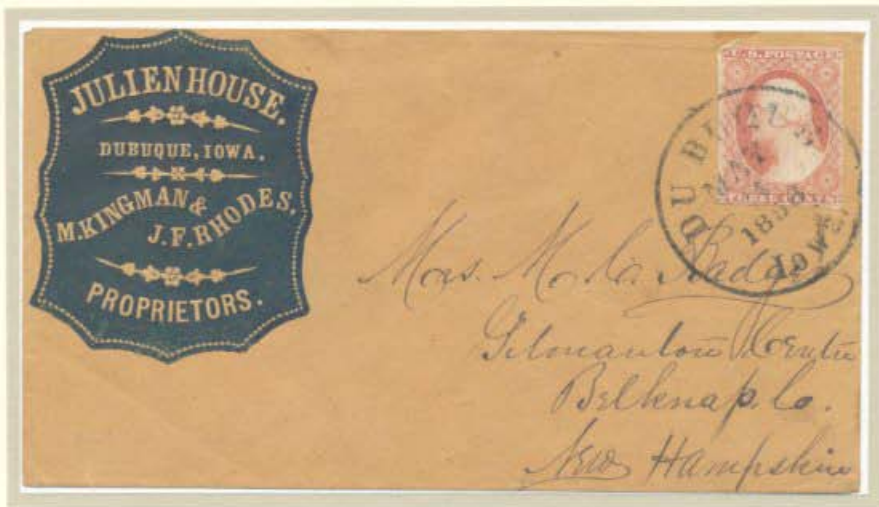 JULIEN HOUSE.
DUBUQUE, IOWA.
M. KINGMAN &
J. F. RHODES,
PROPRIETORS.
U.S. POSTAGE
THREE CENTS
DU BUQUE
IOWA
MAY
185
Mrs. M.
Gilmanton Centre
Belknap. Co.
New Hampshire